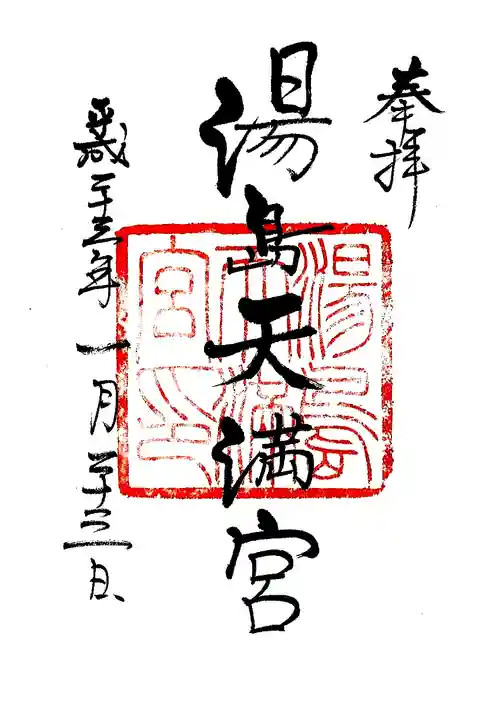 奉拝
湯島天満宮
平成二十五年一月二十三日
湯島
天満
宮印